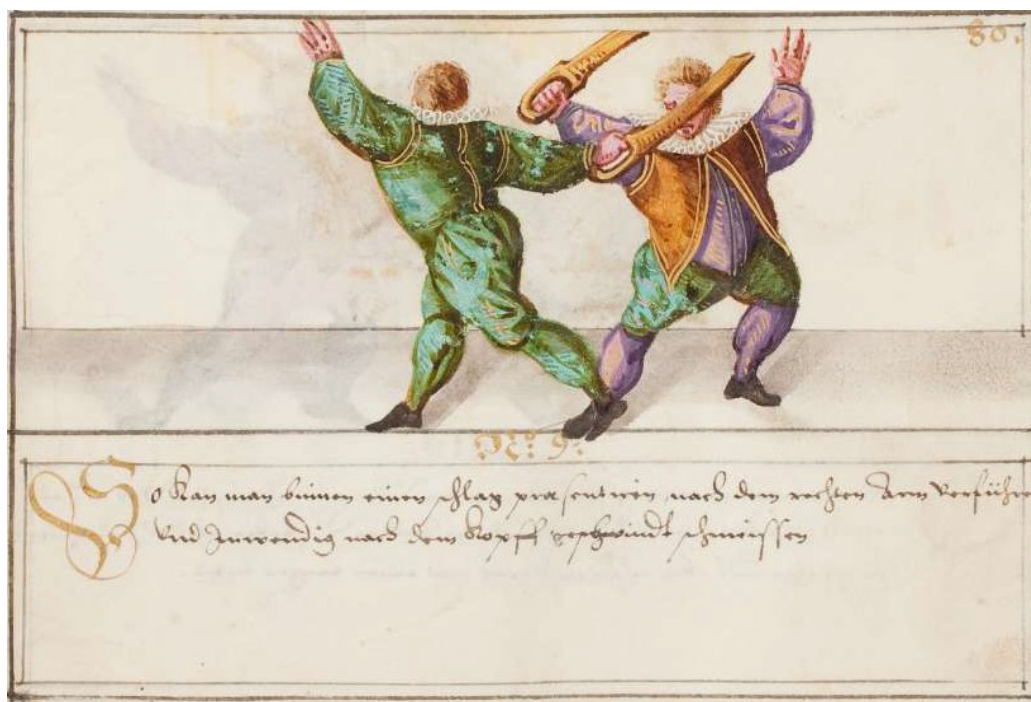 80.
No: 9:
So kan man binnen einen schlag præsentiren nach dem rechten Arm verführe
Vnd Inwendig nach dem Kopff geschwindt schmeissen